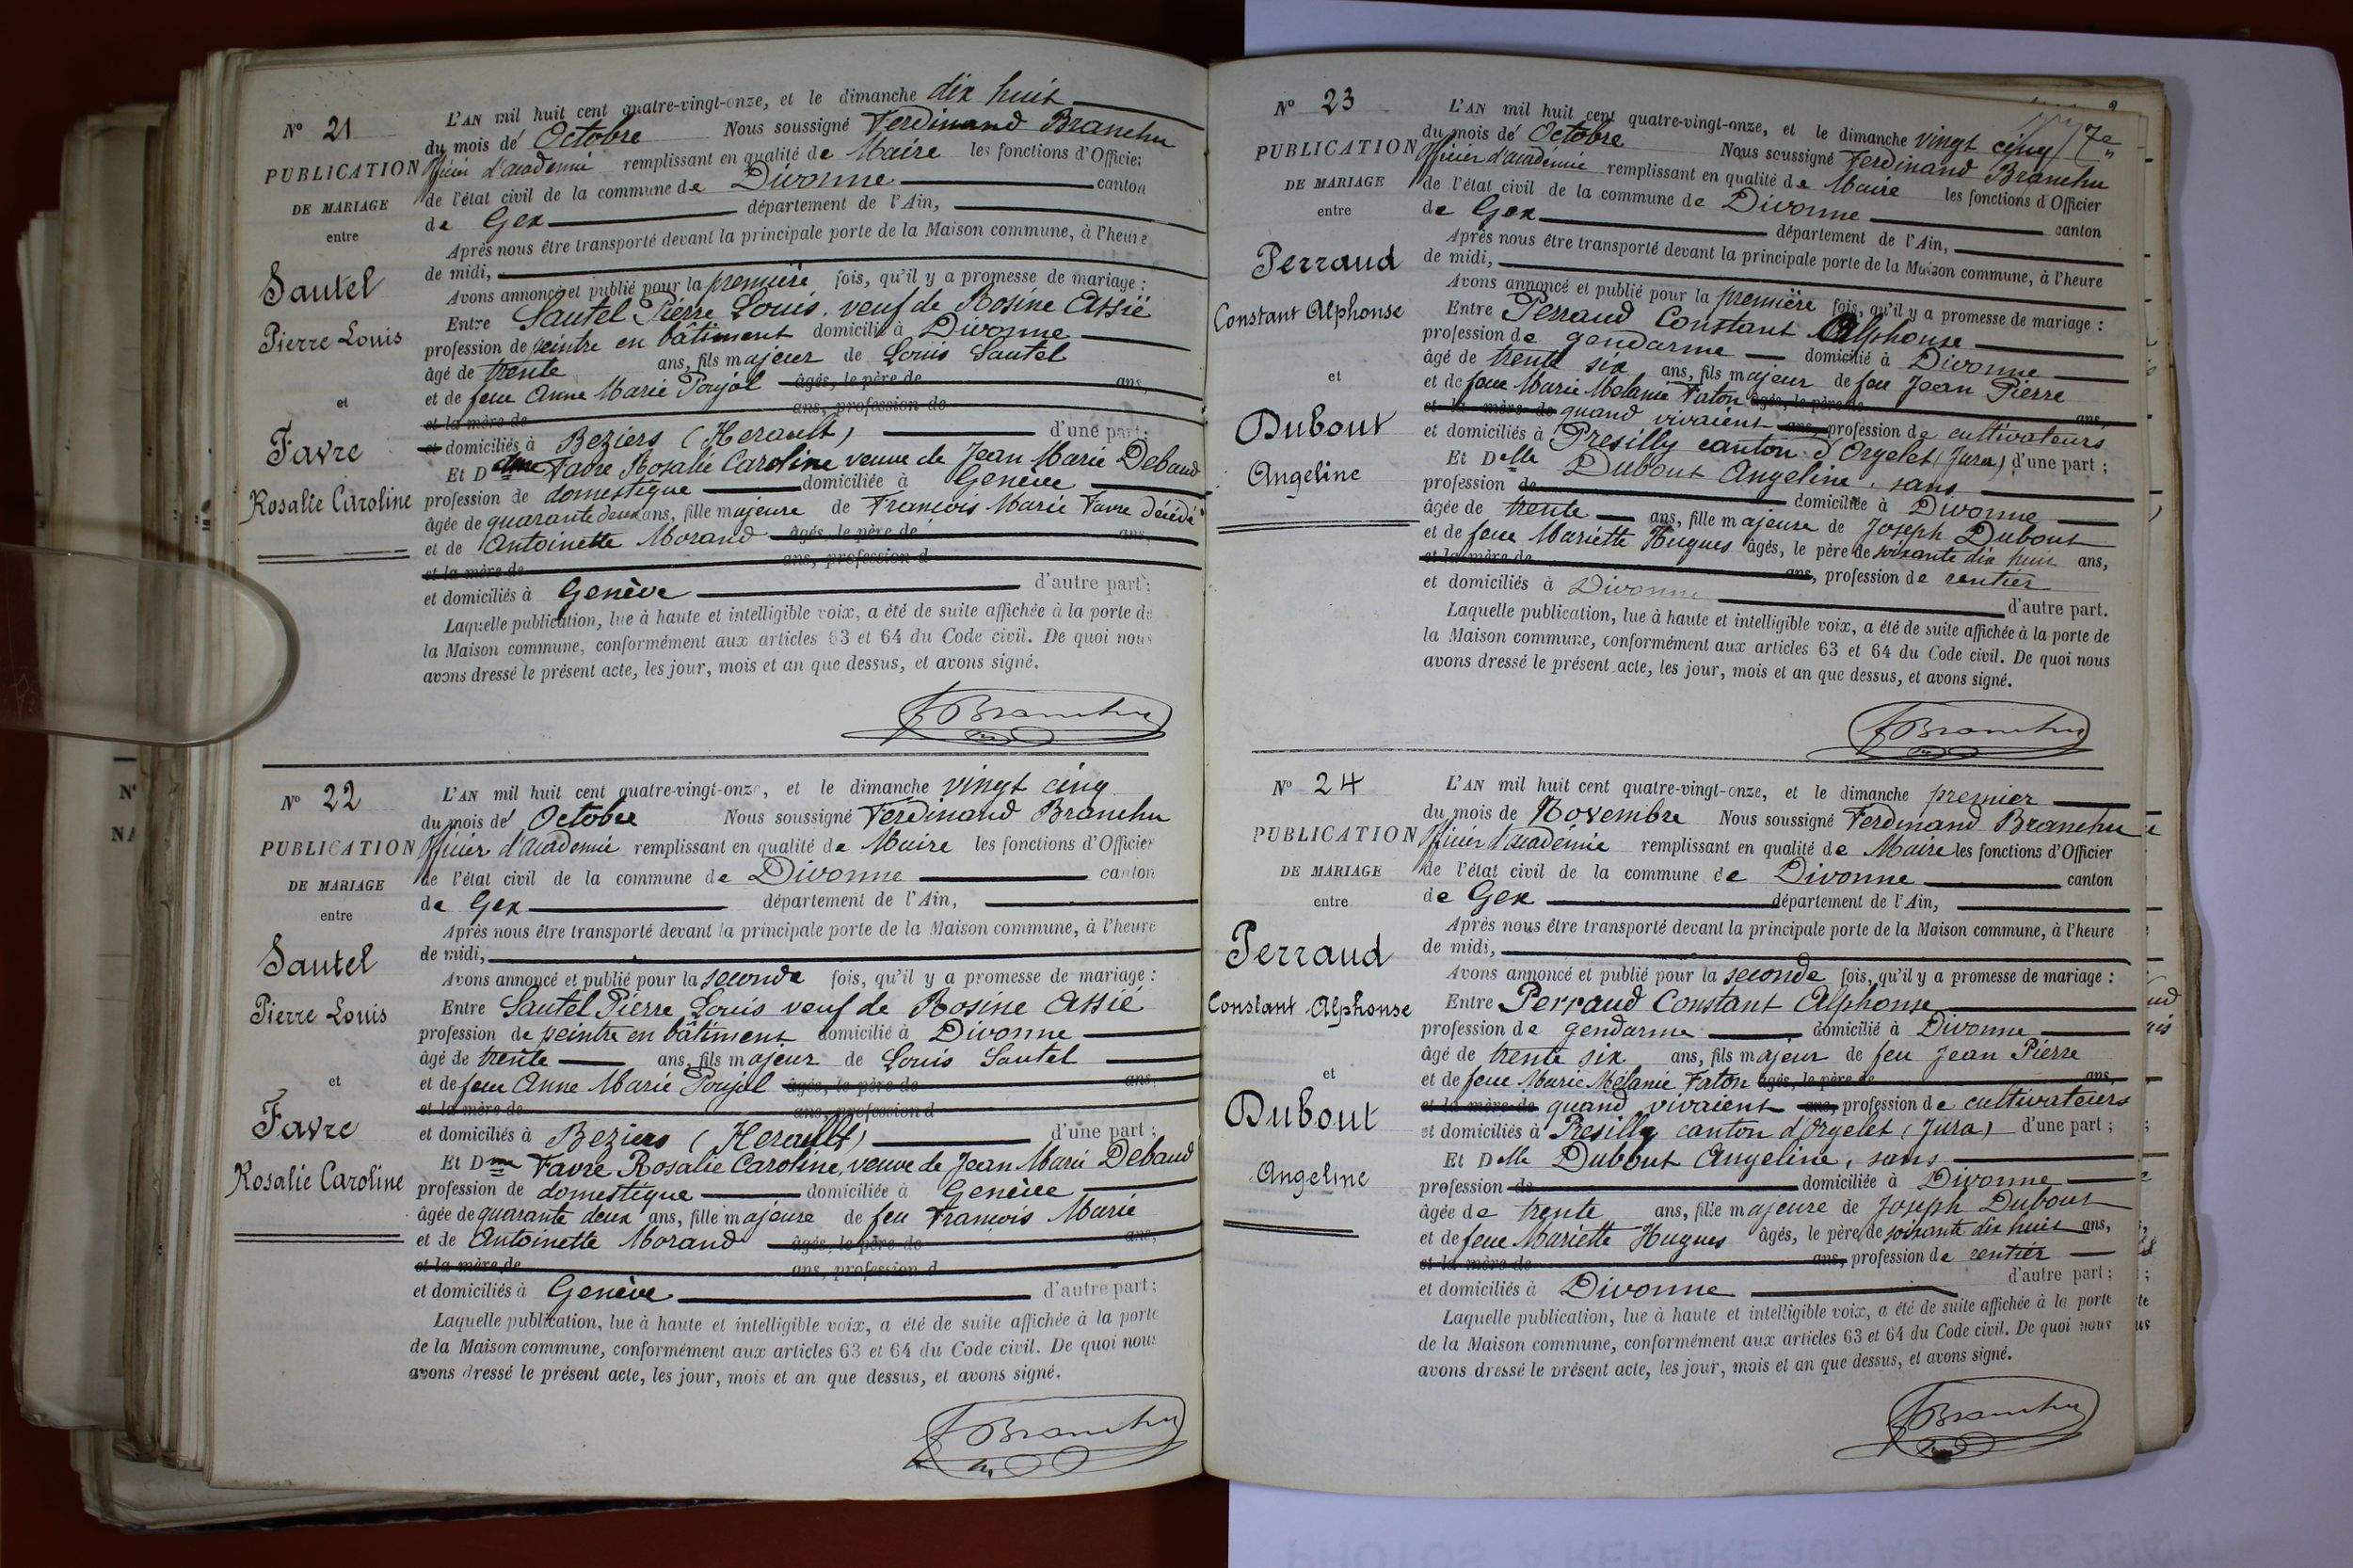 N° 21
PUBLICATION
DE MARIAGE
entre
Sautel
Pierre Louis
et
Favre
Rosalie Caroline
L'AN mil huit cent quatre-vingt-onze, et le dimanche dix huit
du mois de Octobre Nous soussigné Ferdinand Branchu
Officier d'académie remplissant en qualité de Maire les fonctions d'Officier
de l'état civil de la commune de Divonne canton
de Gex département de l'Ain,
Après nous être transporté devant la principale porte de la Maison commune, à l'heure
de midi,
Avons annoncé et publié pour la première fois, qu'il y a promesse de mariage :
Entre Sautel Pierre Louis veuf de Rosine Assié
profession de peintre en bâtiment domicilié à Divonne
âgé de trente ans, fils majeur de Louis Sautel
et de feue Anne Marie Poujol âgés, le père de ans,
et la mère de ans, profession de
et domiciliés à Beziers (Herault) d'une part ;
Et Dme Favre Rosalie Caroline veuve de Jean Marie Debaud
profession de domestique domiciliée à Genève
âgée de quarante deux ans, fille majeure de Francois Marie Favre décédé
et de Antoinette Morand âgés, le père de ans,
et la mère de ans, profession d
et domiciliés à Genève d'autre part ;
Laquelle publication, lue à haute et intelligible voix, a été de suite affichée à la porte de
la Maison commune, conformément aux articles 63 et 64 du Code civil. De quoi nous
avons dressé le présent acte, les jour, mois et an que dessus, et avons signé.
F Branchu
N° 22
PUBLICATION
DE MARIAGE
entre
Sautel
Pierre Louis
et
Favre
Rosalie Caroline
L'AN mil huit cent quatre-vingt-onze, et le dimanche vingt cinq
du mois de Octobre Nous soussigné Ferdinand Branchu
Officier d'académie remplissant en qualité de Maire les fonctions d'Officier
de l'état civil de la commune de Divonne canton
de Gex département de l'Ain,
Après nous être transporté devant la principale porte de la Maison commune, à l'heure
de midi,
Avons annoncé et publié pour la seconde fois, qu'il y a promesse de mariage :
Entre Sautel Pierre Louis veuf de Rosine Assié
profession de peintre en bâtiment domicilié à Divonne
âgé de trente ans, fils majeur de Louis Sautel
et de feue Anne Marie Poujol âgés, le père de ans,
et la mère de ans, profession d
et domiciliés à Beziers (Herault) d'une part ;
Et Dme Favre Rosalie Caroline, veuve de Jean Marie Debaud
profession de domestique domiciliée à Genève
âgée de quarante deux ans, fille majeure de feu Francois Marie
et de Antoinette Morand âgés, le père de ans,
et la mère de ans, profession d
et domiciliés à Genève d'autre part ;
Laquelle publication, lue à haute et intelligible voix, a été de suite affichée à la porte
de la Maison commune, conformément aux articles 63 et 64 du Code civil. De quoi nous
avons dressé le présent acte, les jour, mois et an que dessus, et avons signé.
F Branchu
N° 23
PUBLICATION
DE MARIAGE
entre
Perraud
Constant Alphonse
et
Dubout
Angeline
7e
L'AN mil huit cent quatre-vingt-onze, et le dimanche vingt cinq
du mois de Octobre Nous soussigné Ferdinand Branchu
Officier d'académie remplissant en qualité de Maire les fonctions d'Officier
de l'état civil de la commune de Divonne canton
de Gex département de l'Ain,
Après nous être transporté devant la principale porte de la Maison commune, à l'heure
de midi,
Avons annoncé et publié pour la première fois, qu'il y a promesse de mariage :
Entre Perraud Constant Alphonse
profession de gendarme domicilié à Divonne
âgé de trente six ans, fils majeur de feu Jean Pierre
et de feue Marie Melanie Faton âgés, le père de ans,
et la mère de quand vivaient ans, profession de cultivateurs
et domiciliés à Presilly canton d'Orgelet (Jura) d'une part ;
Et Delle Dubout Angeline, sans
profession de domiciliée à Divonne
âgée de trente ans, fille majeure de Joseph Dubout
et de feue Mariette Hugues âgés, le père de soixante dix huit ans,
et la mère de ans, profession de rentier
et domiciliés à Divonne d'autre part.
Laquelle publication, lue à haute et intelligible voix, a été de suite affichée à la porte de
la Maison commune, conformément aux articles 63 et 64 du Code civil. De quoi nous
avons dressé le présent acte, les jour, mois et an que dessus, et avons signé.
F Branchu
N° 24
PUBLICATION
DE MARIAGE
entre
Perraud
Constant Alphonse
et
Dubout
Angeline
L'AN mil huit cent quatre-vingt-onze, et le dimanche premier
du mois de Novembre Nous soussigné Ferdinand Branchu
Officier d'académie remplissant en qualité de Maire les fonctions d'Officier
de l'état civil de la commune de Divonne canton
de Gex département de l'Ain,
Après nous être transporté devant la principale porte de la Maison commune, à l'heure
de midi,
Avons annoncé et publié pour la seconde fois, qu'il y a promesse de mariage :
Entre Perraud Constant Alphonse
profession de gendarme domicilié à Divonne
âgé de trente six ans, fils majeur de feu Jean Pierre
et de feue Marie Mélanie Faton âgés, le père de ans,
et la mère de quand vivaient ans, profession de cultivateurs
et domiciliés à Présilly canton d'Orgelet (Jura) d'une part ;
Et Delle Dubout Angeline, sans
profession de domiciliée à Divonne
âgée de trente ans, fille majeure de Joseph Dubout
et de feue Mariette Hugues âgés, le père de soixante dix huit ans,
et la mère de ans, profession de rentier
et domiciliés à Divonne d'autre part ;
Laquelle publication, lue à haute et intelligible voix, a été de suite affichée à la porte
de la Maison commune, conformément aux articles 63 et 64 du Code civil. De quoi nous
avons dressé le présent acte, les jour, mois et an que dessus, et avons signé.
F Branchu